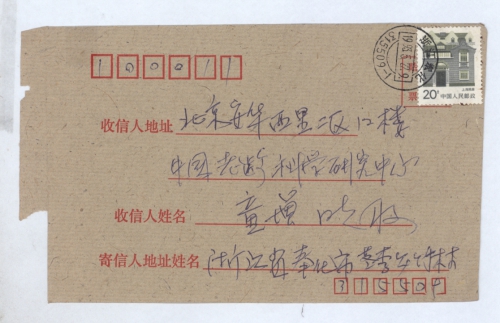 100011
20分 中国人民邮政
315509
收信人地址 北京安华西里二区12楼
中国老龄科学研究中心
收信人姓名 童增 收
寄信人地址姓名 浙江省奉化市
315509